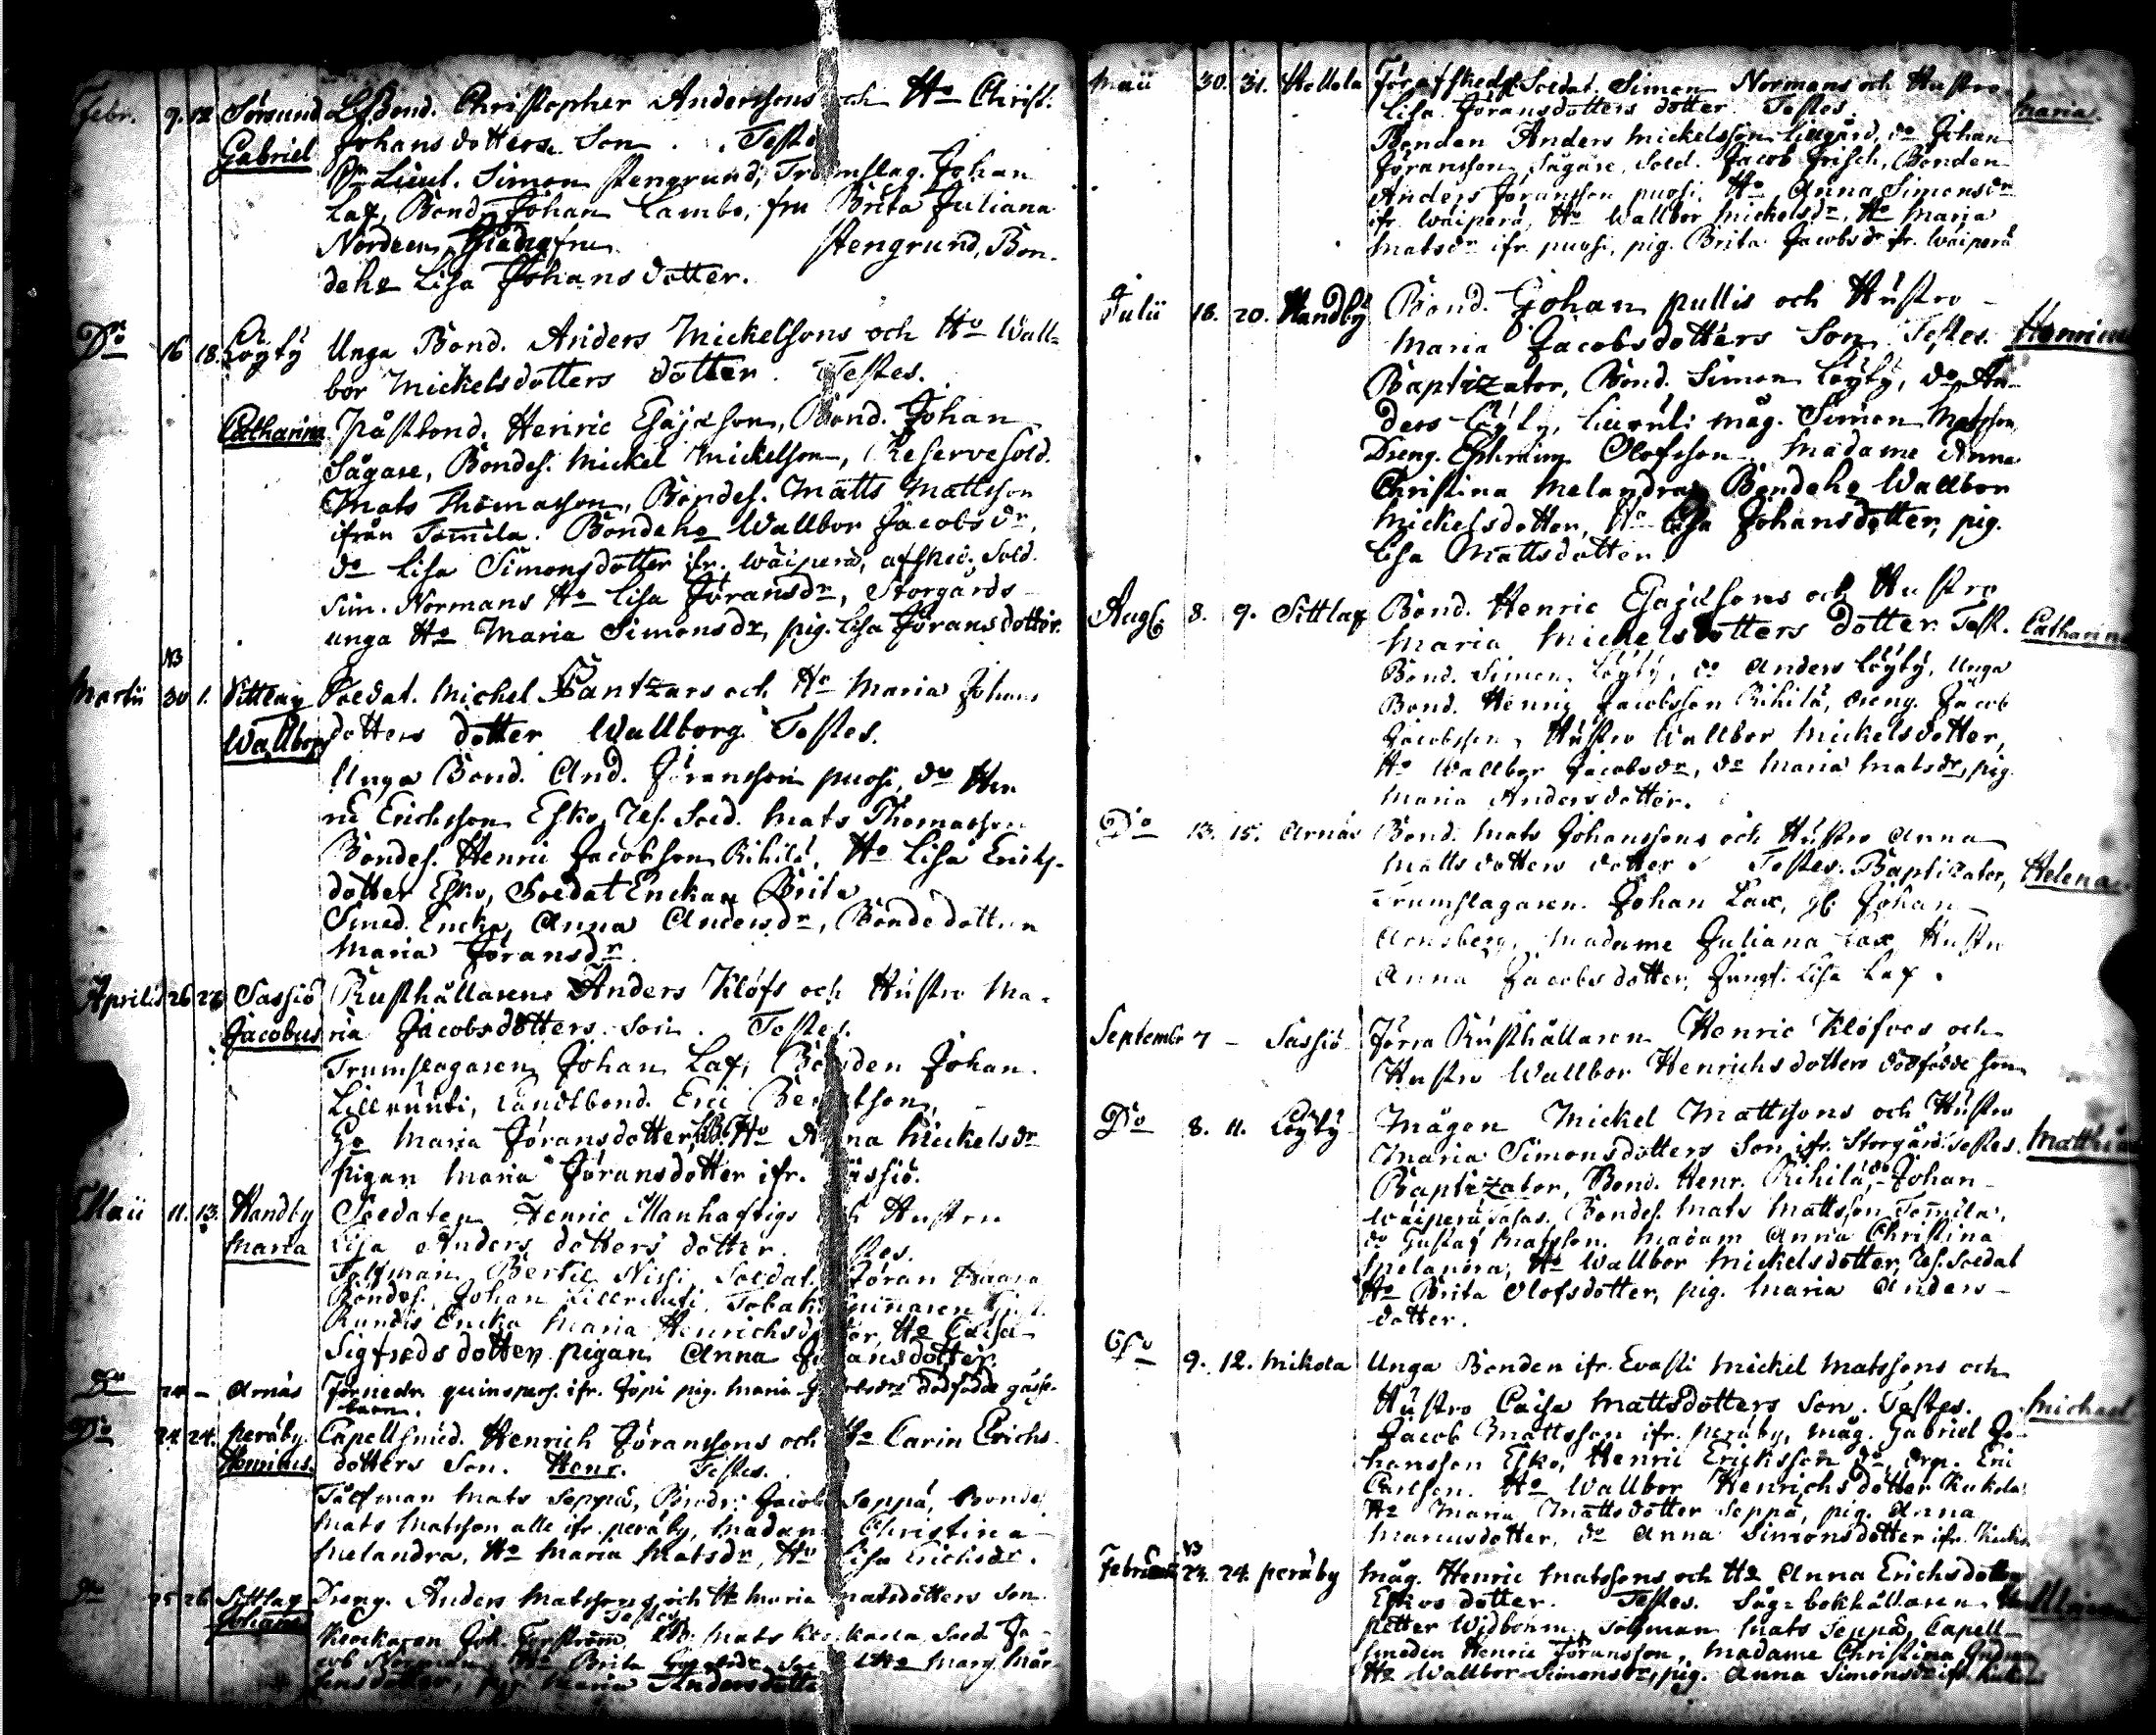 Febr. 9. 12 Sörsund L Bond. Christopher Anderssons och Ho Christ.
Gabriel Johans dotters Son. Teste
Lieut. Simon Stengrund, Trumslag. Johan
Lax, Bond. Johan Lambo, fru Brita Juliana
Nordeen, Stengrund, Bon-
deho Lisa Johansdotter.
Do 16 18. Löyty Unga Bond. Anders Mickelsons och Ho Wall-
bor Mickelsdotters dotter. Testes.
Catharina Påstbond. Henric Esajæson, Bond. Johan
Sågare, Bondes. Mickel Mickelson, Reservesold.
Mats Thomasson, Bondes. Matts Mattsson
ifrån Tomila. Bondeho Wallbor Jacobs dr,
do Lisa Simonsdotter ifr. Wäiperä, afsked. Sold.
Sim. Normans Ho Lisa Jöransdr, Storgårds
unga Ho Maria Simonsdr, pig. Lisa Jörans dotter.
Martii 30 1. Sittlax Soldat. Mickel Pantzars och Ho Maria Johans
Wallborg dotters dotter Wallborg. Testes.
Unga Bond. And. Jöransson puosi, do Hen
ric Ericksson Esko, Res. Sold. Mats Thomasson
Bondes. Henric Jacobsson Rihilä, Ho Lisa Erichs-
dotter Esko, Soldat Enckan Brita
Smed. Encka, Anna Andersdr, Bondedotter
Maria Jöransdr.
Aprilis 26 27 Sassiö Rusthållarens Anders Klöfs och Hustro Ma-
Jacobus ria Jacobsdotters Son. Testes.
Trumslagaren Johan Lax, Bonden Johan
Lillruuti, Landtbond. Eric Bertson,
Ho Maria Jöransdotter, Ho Anna Mickelsdr
pigan Maria Jöransdotter ifr. Sassiö.
Maii 11. 13. Handby Soldaten Henric Manhaftigs och Hustru
Maria Lisa Anders dotters dotter. Testes.
Tolfman Bertil Nissi, Soldat. Jöran Haara
Bondes. Johan Lillruuti, Tobaks
Encka Maria Henrichsdotter, Ho Caisa
Sigfreds dotter, pigan Anna Jöransdotter.
Do 24 – Arnäs ifr. Jöpi pig. Maria dödfödde gåsse-
barn.
Do 24. 24. peräby Capellsmed. Henrich Jöranssons och Ho Carin Erichs
Henricus. dotters Son. Henr. Testes.
Tålfman Mats Seppä, Bondr. Jacob Seppä, Bonde
Mats Matsson alle ifr. peräby, Madam Christina
Melandra, Ho Maria Matsdr, Ho Lisa Erichsdr.
Do 25 26 Sittlax Dreng. Anders Matssons och Ho Maria Matsdotters Son
Johannes Testes
Klockaren Joh. Mats Sold. Ja-
cob Norman, Ho Brita Ho Marg. Mår-
tensdotter, pig. Maria Andersdotter
Maii 30. 31. Heltola Förafsked. Soldat. Simon Normans och Hustro
Lisa Jöransdotters dotter. Testes. Maria.
Bonden Anders Mickelsson Lillgård, do Johan
Jöransson Sågare, Sold. Jacob Frisch, Bonden
Anders Jöransson puosi, Ho Anna Simonsdr
ifr. Wäiperä, Ho Wallbor Mickelsdr, Ho Maria
Matsdr ifr. puosi, pig. Brita Jacobsdr ifr. Wäiperä
Julii 18. 20. Handby Bond. Johan pullis och Hustro
Maria Jacobsdotters Son. Testes. Henricus
Baptizator, Bond. Simon Löyty, do An-
ders Löyty, måg. Simon Matsson
Dreng. Ephraim Olofsson. Madame Anna
Christina Melandra, Bondeho Wallbor
Mickelsdotter, Ho Lisa Johansdotter, pig.
Lisa Mattsdotter.
Aug. 8. 9. Sittlax Bond. Henric Esajæsons och Hustro
Maria Mickelsdotters dotter. Test. Catharina
Bond. Simon Löyty, do Anders Löyty, Unga
Bond. Henric Jacobsson Rihilä, dreng. Jacob
Jacobsson, Hustro Wallbor Mickelsdotter,
Ho Wallbor Jacobsdr, do Maria Matsdr, pig.
Maria Andersdotter.
Do 13. 15. Arnäs Bond. Mats Johanssons och Hustro Anna
Matts dotters dotter. Testes. Baptizator, Helena
Trumslagaren Johan Lax, Johan
Arnsberg, Madame Juliana Lax, Hustro
Anna Jacobsdotter, Jungf. Lisa Lax.
September 7 – Sassiö Förra Rusthållaren Henric Klöfves och
Hustro Wallbor Henrichsdotters dödfödde son
Do 8. 11. Löyty Mågen Mickel Mattssons och Hustro
Maria Simonsdotters Son ifr. Storgård. Testes. Matthias
Baptizator, Bond. Henr. Rihilä, do Johan
Wäiperä, Bondes. Mats Mattsson Tomila,
do Gustaf Matsson. Madam Anna Christina
Melandra, Ho Wallbor Mickelsdotter, Res. Soldat
Ho Brita Olofsdotter, pig. Maria Anders-
dotter.
Do 9. 12. Mikola Unga Bonden ifr. Evasti Mickel Matssons och
Hustro Caisa Mattsdotters Son. Testes. Michael
Jacob Mattsson ifr. peräby, måg. Gabriel Jo-
hansson Esko, Henric Ericksson do, drg. Eric
Carlson. Ho Wallbor Henrichsdotter Kukola
Ho Maria Mattsdotter Seppä, pig. Anna
Marcusdotter, do Anna Simonsdotter ifr.
Februarii 23. 24. peräby Måg. Henric Matssons och Ho Anna Erichsdotter
Eskos dotter. Testes. Såg-bokhållaren
Petter Widbom, Tolfman Mats Seppä, Capell-
smeden Henric Jöransson, Madame Christina
Ho Wallbor Simonsdr, pig. Anna Simonsdr ifr.